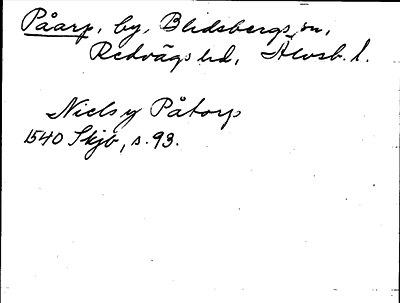 Påarp, by, Blidsbergs sn,
Redvägs hd, Älvsb. l.
Niels y Påtorp
1540 Skjb, s. 93.